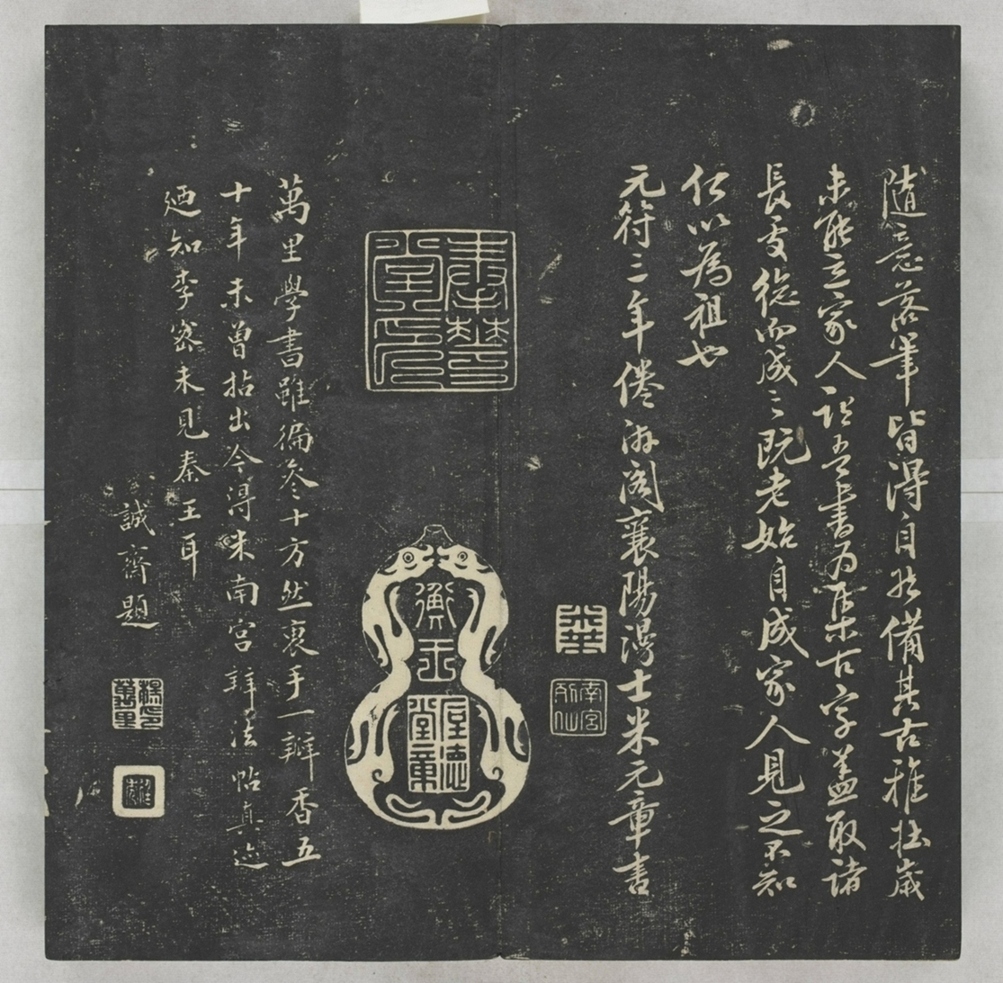 隨意落筆皆得自然備其古雅壯歲
未能立家人謂吾書為集古字蓋取諸
長處總而成之既老始自成家人見之不知
何以為祖也
元符二年倦游閣襄陽漫士米元章書
南宮
衡王
厚德堂章
萬里學書雖徧參十方然裏手一瓣香五
十年未曾拈出今得米南宮辯法帖真迹
廼知李密未見秦王耳
誠齋題
楊萬里印